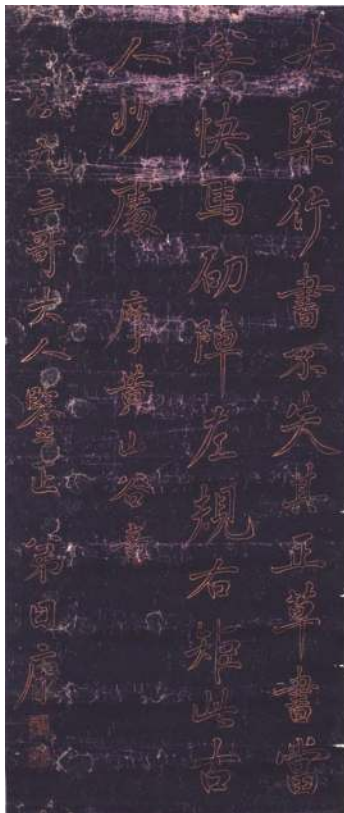 大槩行書不失其正草書當
快馬斫陣左規右矩此古
人妙處 摩黃山谷書
三哥大人鑒正 弟